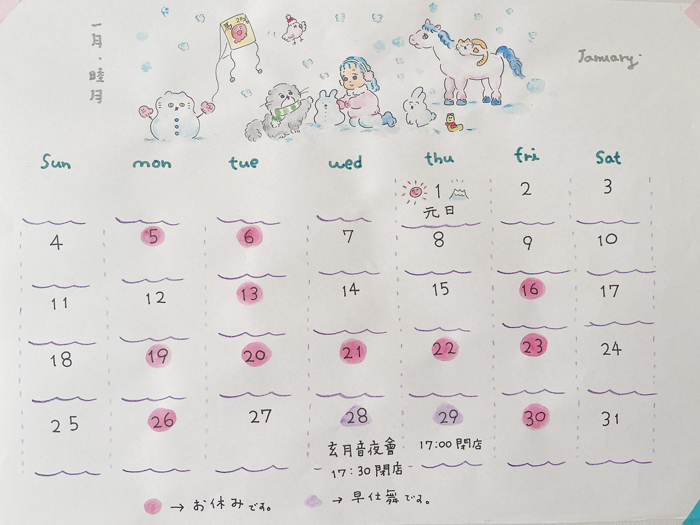 一月・睦月
馬 26
January.
Sun mon tue wed thu fri Sat
1 2 3
元日
4 5 6 7 8 9 10
11 12 13 14 15 16 17
18 19 20 21 22 23 24
25 26 27 28 29 30 31
玄月音夜會 17:00 閉店
17:30 閉店
→ お休みです。 → 早仕舞です。